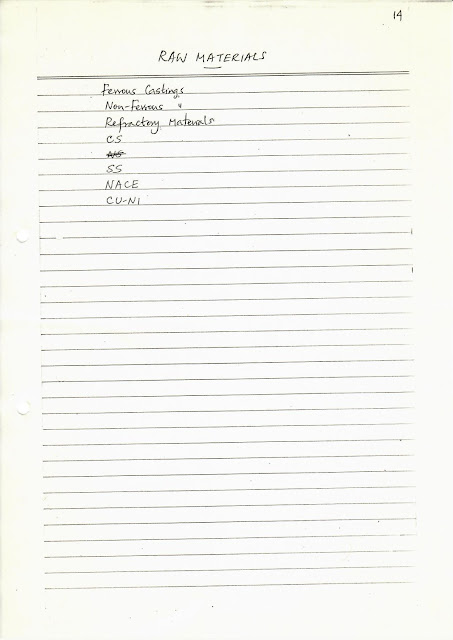 14
RAW MATERIALS
Ferrous Castings
Non-Ferrous "
Refractory Materials
CS
SS
NACE
CU-NI